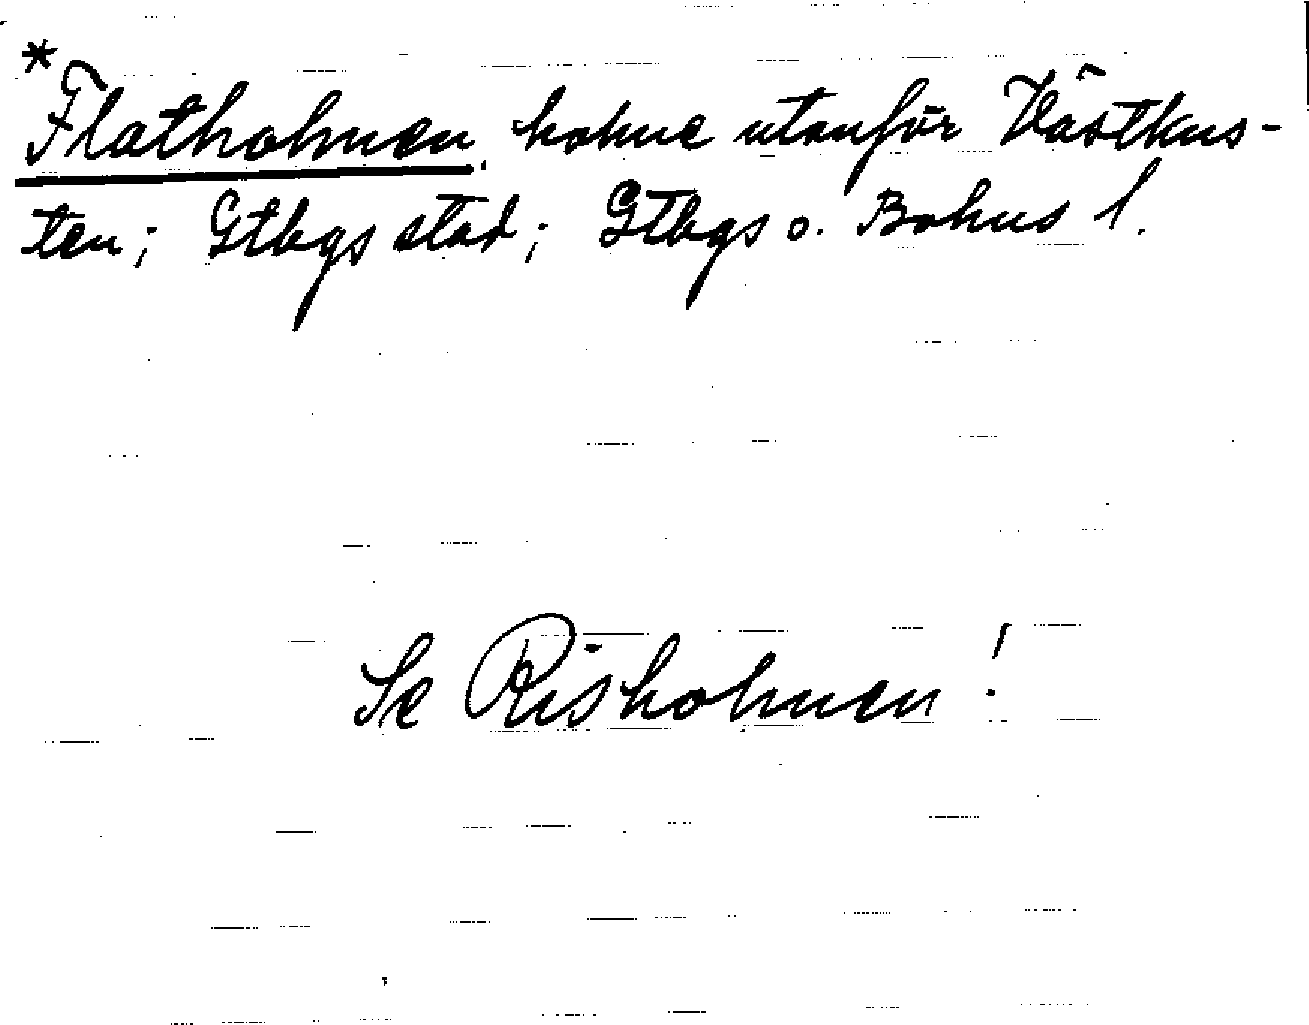 *
Flatholmen, holme utanför Västkus-
ten; Gtbgs stad; Gtbgs o. Bohus l.
Se Risholmen!